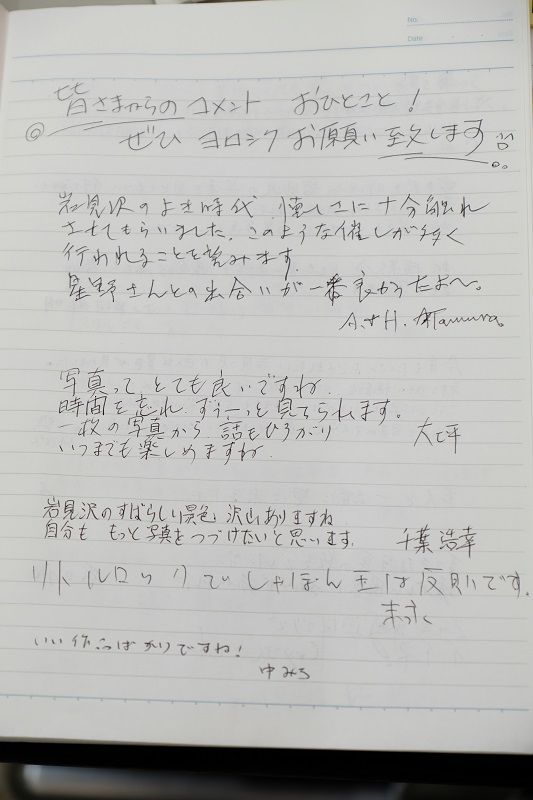 No.
Date
皆さまからのコメント おひとこと!
◎ ぜひ ヨロシク お願い致します
岩見沢のよき時代、懐しさに十分触れ
させてもらいました。このような催しが多く
行われることを望みます。
星野さんとの出合いが一番良かったよ〜。
A.+H. Tamura.
写真って とても良いですね。
時間を忘れ ずぅーっと見てられます。
一枚の写真から 話もひろがり
いつまでも楽しめますね。
大坪
岩見沢のすばらしい景色 沢山ありますね
自分も もっと写真をつづけたいと思います。
千葉 浩幸
リトルロックでしゃぼん玉は反則です。
いい作品ばかりですね!
中みち